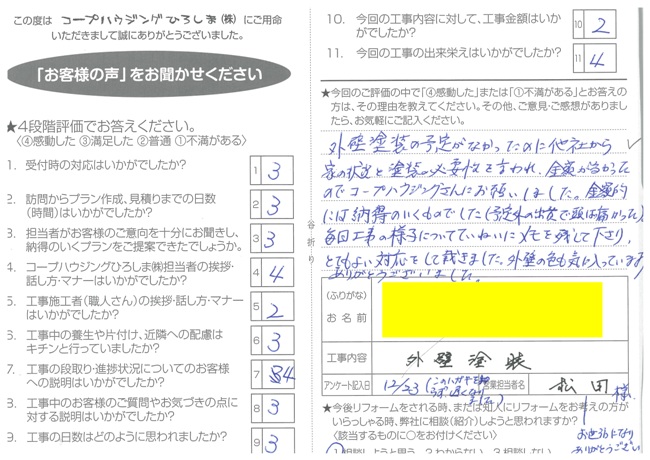 この度は コープハウジングひろしま(株) にご用命
いただきまして誠にありがとうございました。
「お客様の声」をお聞かせください
★4段階評価でお答えください。
〈④感動した ③満足した ②普通 ①不満がある〉
1. 受付時の対応はいかがでしたか?
1 3
2. 訪問からプラン作成、見積りまでの日数
(時間)はいかがでしたか?
2 3
3. 担当者がお客様のご意向を十分にお聞きし、
納得のいくプランをご提案できたでしょうか。
3 3
4. コープハウジングひろしま㈱担当者の挨拶・
話し方・マナーはいかがでしたか?
4 4
5. 工事施工者(職人さん)の挨拶・話し方・マナー
はいかがでしたか?
5 2
6. 工事中の養生や片付け、近隣への配慮は
キチンと行っていましたか?
6 3
7. 工事の段取り・進捗状況についてのお客様
への説明はいかがでしたか?
7 4
8. 工事中のお客様のご質問やお気づきの点に
対する説明はいかがでしたか?
8 3
9. 工事の日数はどのように思われましたか?
9 3
谷折り
10. 今回の工事内容に対して、工事金額はいか
がでしたか?
10 2
11. 今回の工事の出来栄えはいかがでしたか?
11 4
★今回のご評価の中で「④感動した」または「①不満がある」とお答え
の方は、その理由を教えてください。その他、ご意見・ご感想がありまし
たら、お気軽にご記入ください。
外壁塗装の予定がなかったのに他社から
家の状況と塗装の必要性を言われ、金額が高かった
のでコープハウジングさんにお願いしました。金額的
には納得のいくものでした(予定外の出費で頭は痛かった)
毎回工事の様子についてていねいにメモを残して下さり、
とてもよい対応をして頂きました。外壁の色も気に入っています
ありがとうございました。
(ふりがな)
お名前
工事内容
外壁塗装
アンケート記入日
12/23
営業担当者名
松田様
お世話になり
ありがとうござい
★今後リフォームをされる時、または知人にリフォームをお考えの方が
いらっしゃる時、弊社に相談(紹介)しようと思いますか?
〈該当するものに○をお付けください〉
1 相談しようと思う 2 わからない 3 相談しない